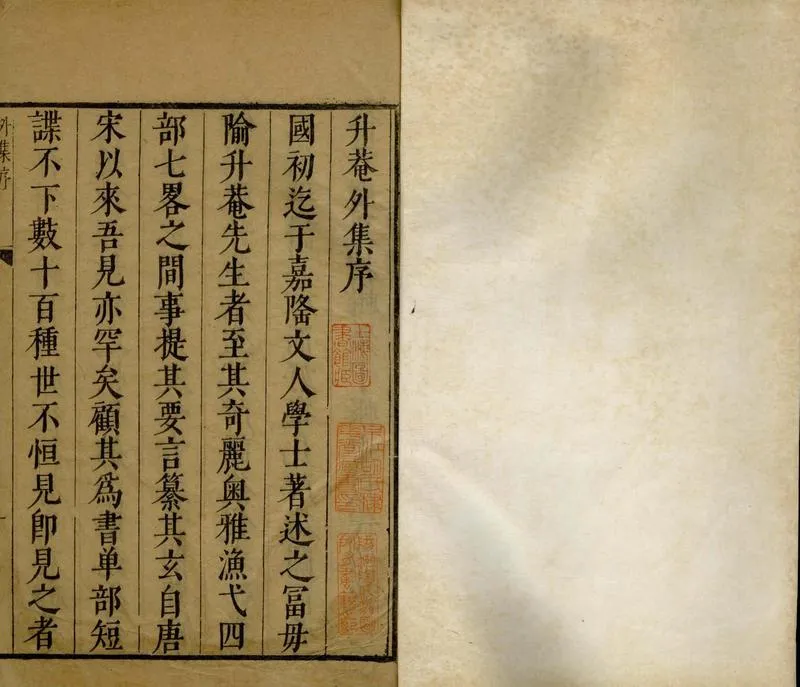 升菴外集序
國初迄于嘉隆文人學士著述之富毋
隃升菴先生者至其奇麗奧雅漁弋四
部七畧之間事提其要言纂其玄自唐
宋以來吾見亦罕矣顧其為書单部短
諜不下數十百種世不恒見卽見之者
外集序